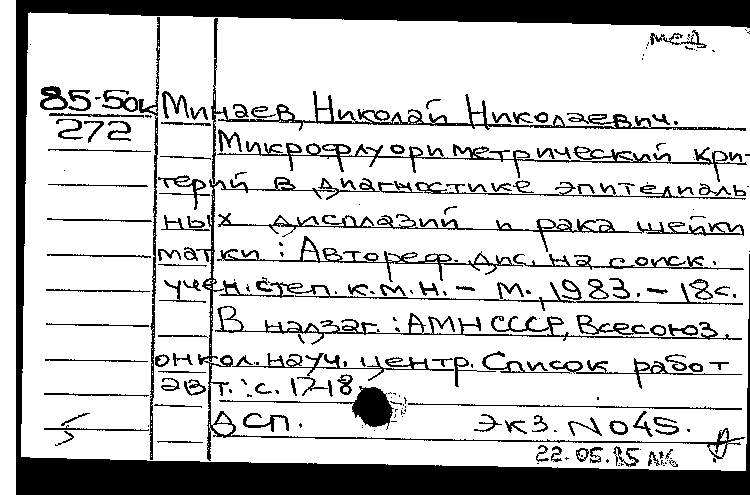 мед.
85-50к Минаев, Николай Николаевич.
272 Микрофлуориметрический кри-
терий в диагностике эпителиаль
ных дисплазий и рака шейки
матки : Автореф. дис. на соиск.
учен. степ. к.м.н. - М., 1983. - 18с.
В надзаг. : АМН СССР, Всесоюз.
онкол. науч. центр. Список работ
авт. : с. 17-18.
ДСП. Экз. N045.
22.05.85